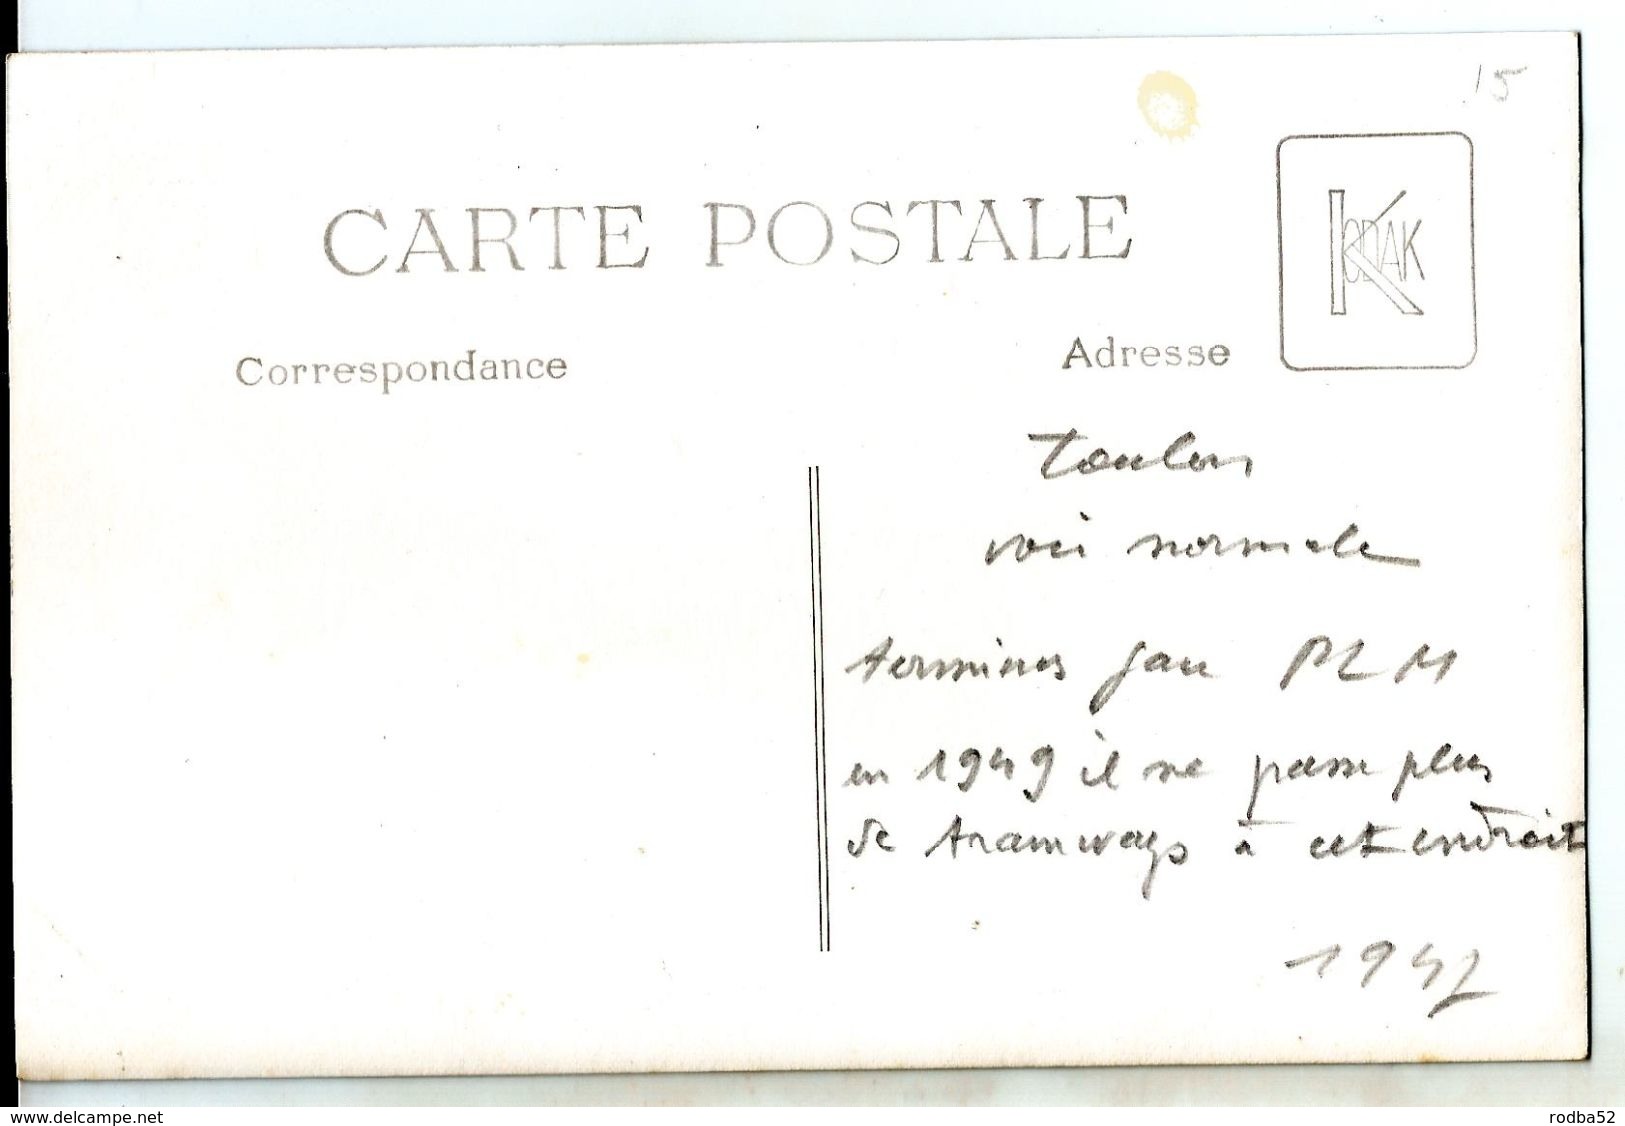 15
CARTE POSTALE
KODAK
Correspondance
Adresse
Toulon
voie normale
terminus gare PLM
en 1949 il ne passe plus
de tramways à cet endroit
www.delcampe.net
rodba52